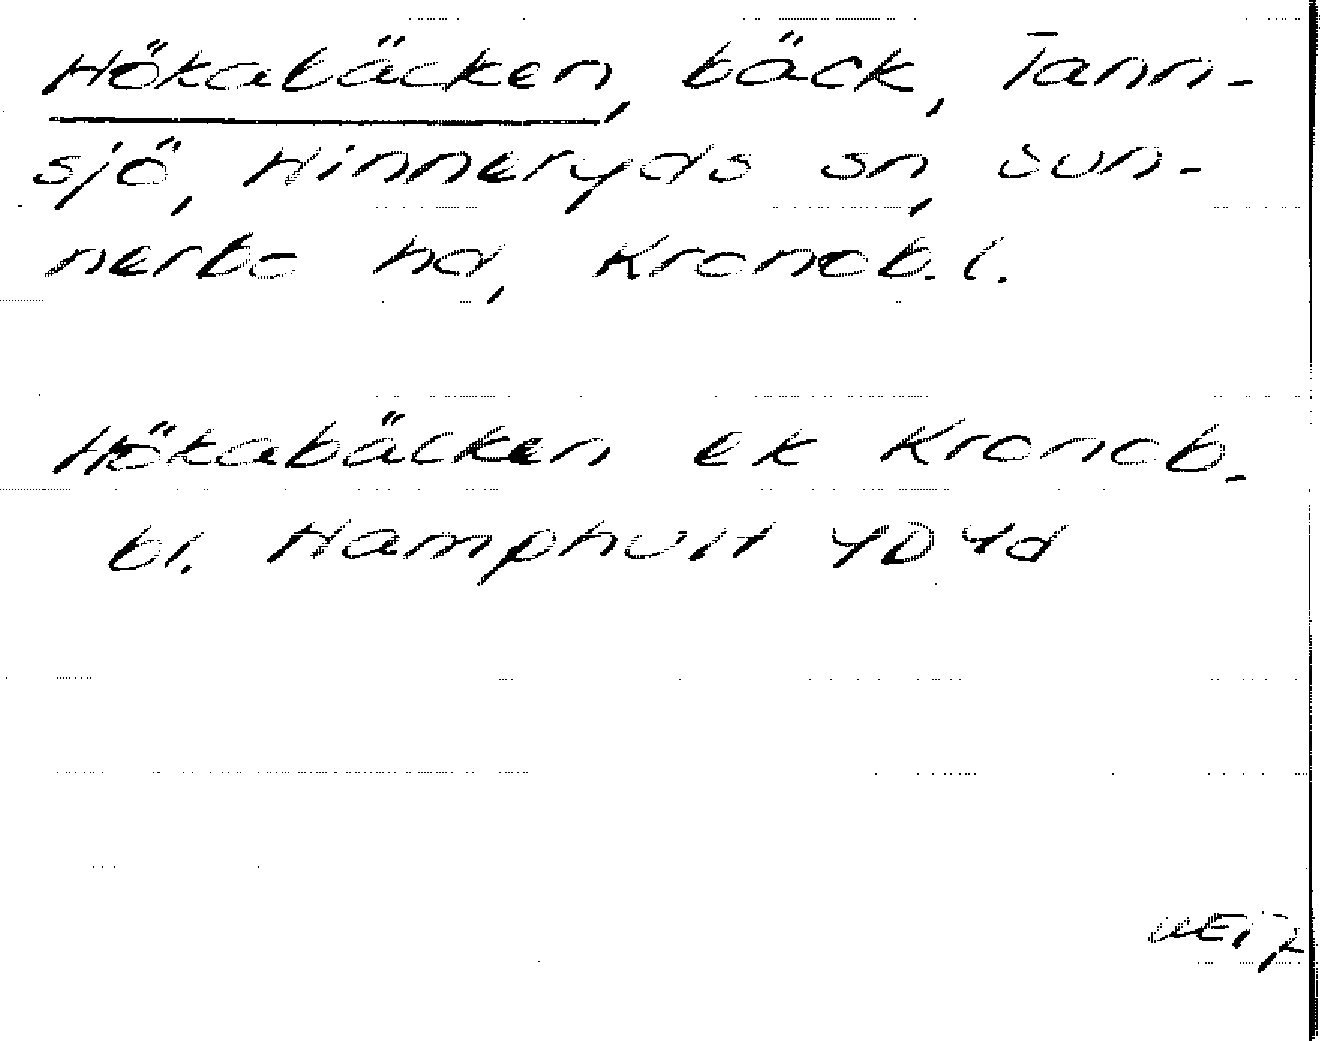 Hökabäcken, bäck, Tann-
sjö, Hinneryds sn, Sun-
nerbo hd, Kronob. l.
Hökabäcken ek Kronob.
bl. Hamphult 4D 4d